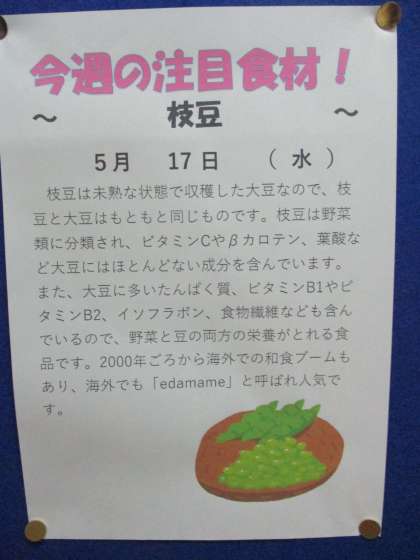 今週の注目食材！
～ 枝豆 ～
5月 17日 （ 水 ）
枝豆は未熟な状態で収穫した大豆なので、枝
豆と大豆はもともと同じものです。枝豆は野菜
類に分類され、ビタミンCやβカロテン、葉酸な
ど大豆にはほとんどない成分を含んでいます。
また、大豆に多いたんぱく質、ビタミンB1やビ
タミンB2、イソフラボン、食物繊維なども含ん
でいるので、野菜と豆の両方の栄養がとれる食
品です。2000年ごろから海外での和食ブームも
あり、海外でも「edamame」と呼ばれ人気で
す。